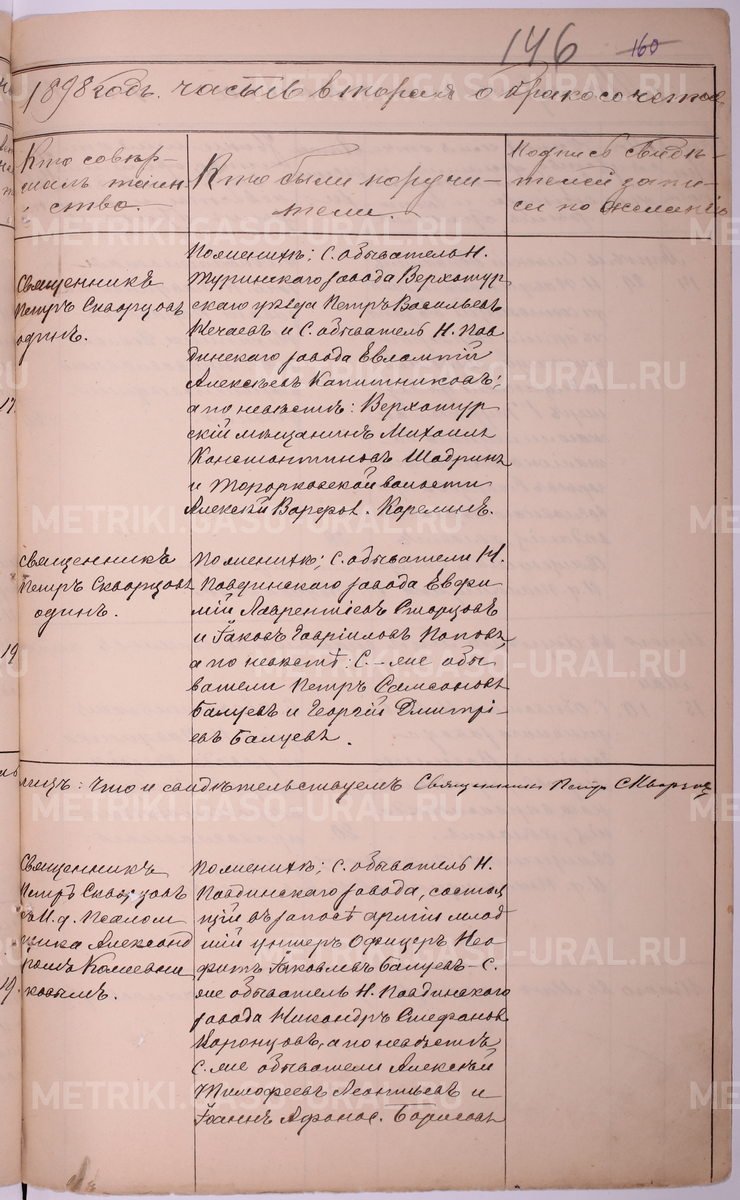 146 160
1898 годъ. часть вторая о бракосочетав
Кто совер-
шалъ таин-
ство.
Кто были поручи-
тели.
Подпись свидѣ-
телей запи-
си по желанію
Священникъ
Петръ Скворцовъ
одинъ.
По женихѣ; С. обыватель Н.
Туринскаго завода Верхотур
скаго уѣзда Петръ Васильевъ
Нечаевъ и С. обыватель Н. Пав
динскаго завода Евлампій
Алексѣевъ Капитниковъ;
а по невѣстѣ: Верхотур
скій мѣщанинъ Михаилъ
Константиновъ Шадринъ
и волости
Алексѣй Корелинъ.
17.
Священникъ
Петръ Скворцовъ
одинъ.
По женихѣ; С. обыватели Н.
Павдинскаго завода Евфи
мій Лаврентіевъ Скворцовъ
и Іаковъ Гавріиловъ Поповъ,
а по невѣстѣ: С.-же обы
ватели Петръ Самсоновъ
Балуевъ и Георгій Дмитрі-
евъ Балуевъ.
19
лицъ: Что и свидѣтельствуемъ Священникъ Петръ Скворцовъ
Священникъ
Петръ Скворцовъ
съ И. д. Псалом
щика Александ
ромъ
ковымъ.
По женихѣ; С. обыватель Н.
Павдинскаго завода, состоя
щій въ запасѣ арміи млад
шій унтеръ Офицеръ Нео
фитъ Іаковлевъ Балуевъ – С.
же обыватель Н. Павдинскаго
завода Никандръ Стефановъ
Воронцовъ, а по невѣстѣ
С. же обыватели Алексѣй
Тимофеевъ Леонтьевъ и
Іоаннъ Афанас. Борисовъ
19.
METRIKI.GASO-URAL.RU